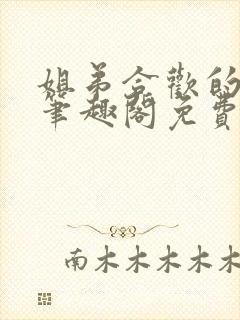 姐弟合歡的
筆趣閣免費
南木木木木木